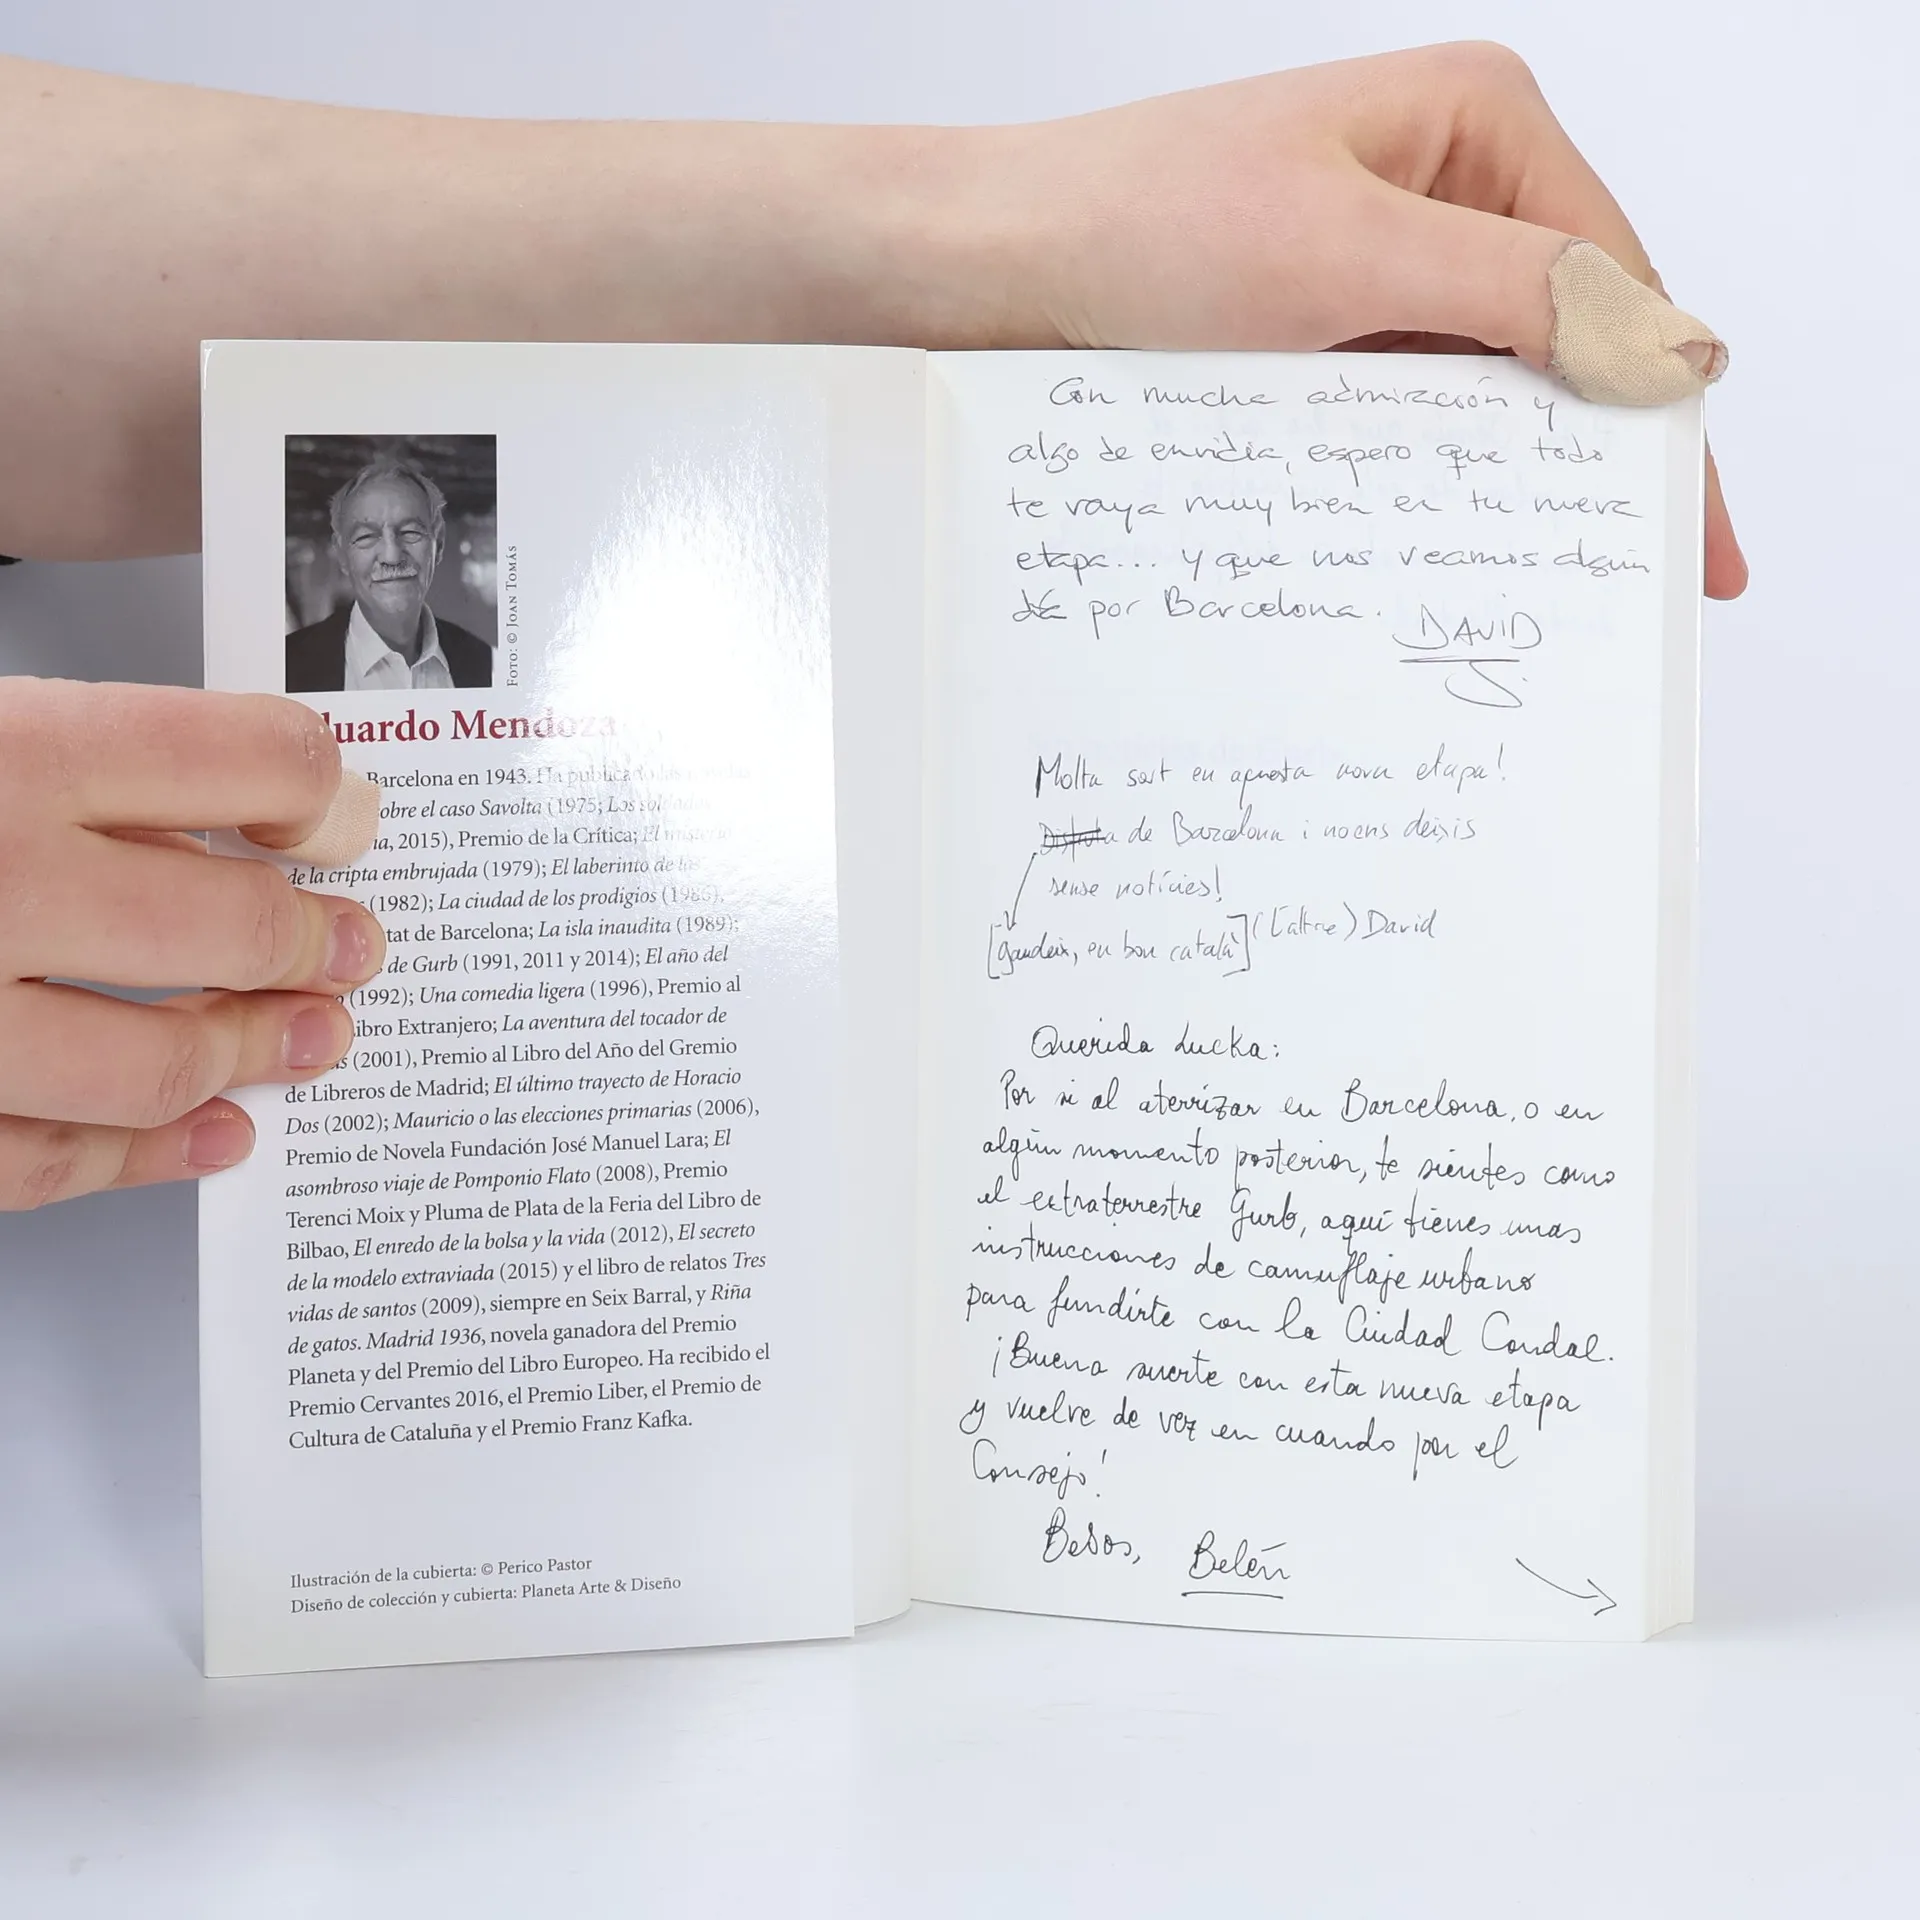 FOTO: © JOAN TOMÁS
duardo Mendoza
Barcelona en 1943. Ha publicado las novelas
sobre el caso Savolta (1975; Los soldados
ia, 2015), Premio de la Crítica; El misterio
de la cripta embrujada (1979); El laberinto de las
(1982); La ciudad de los prodigios (1986),
tat de Barcelona; La isla inaudita (1989);
de Gurb (1991, 2011 y 2014); El año del
(1992); Una comedia ligera (1996), Premio al
Libro Extranjero; La aventura del tocador de
as (2001), Premio al Libro del Año del Gremio
de Libreros de Madrid; El último trayecto de Horacio
Dos (2002); Mauricio o las elecciones primarias (2006),
Premio de Novela Fundación José Manuel Lara; El
asombroso viaje de Pomponio Flato (2008), Premio
Terenci Moix y Pluma de Plata de la Feria del Libro de
Bilbao, El enredo de la bolsa y la vida (2012), El secreto
de la modelo extraviada (2015) y el libro de relatos Tres
vidas de santos (2009), siempre en Seix Barral, y Riña
de gatos. Madrid 1936, novela ganadora del Premio
Planeta y del Premio del Libro Europeo. Ha recibido el
Premio Cervantes 2016, el Premio Liber, el Premio de
Cultura de Cataluña y el Premio Franz Kafka.
Ilustración de la cubierta: © Perico Pastor
Diseño de colección y cubierta: Planeta Arte & Diseño
Con mucha admiración y
algo de envidia, espero que todo
te vaya muy bien en tu nueva
etapa... y que nos veamos algún
día por Barcelona.
DAVID
Molta sort en aquesta nova etapa!
Disfruta de Barcelona i no ens deixis
sense notícies!
[gaudeix, en bon català] (L'altre) David
Querida Lucka:
Por si al aterrizar en Barcelona, o en
algún momento posterior, te sientes como
el extraterrestre Gurb, aquí tienes unas
instrucciones de camuflaje urbano
para fundirte con la Ciudad Condal.
¡Buena suerte con esta nueva etapa
y vuelve de vez en cuando por el
Consejo!
Besos, Belén